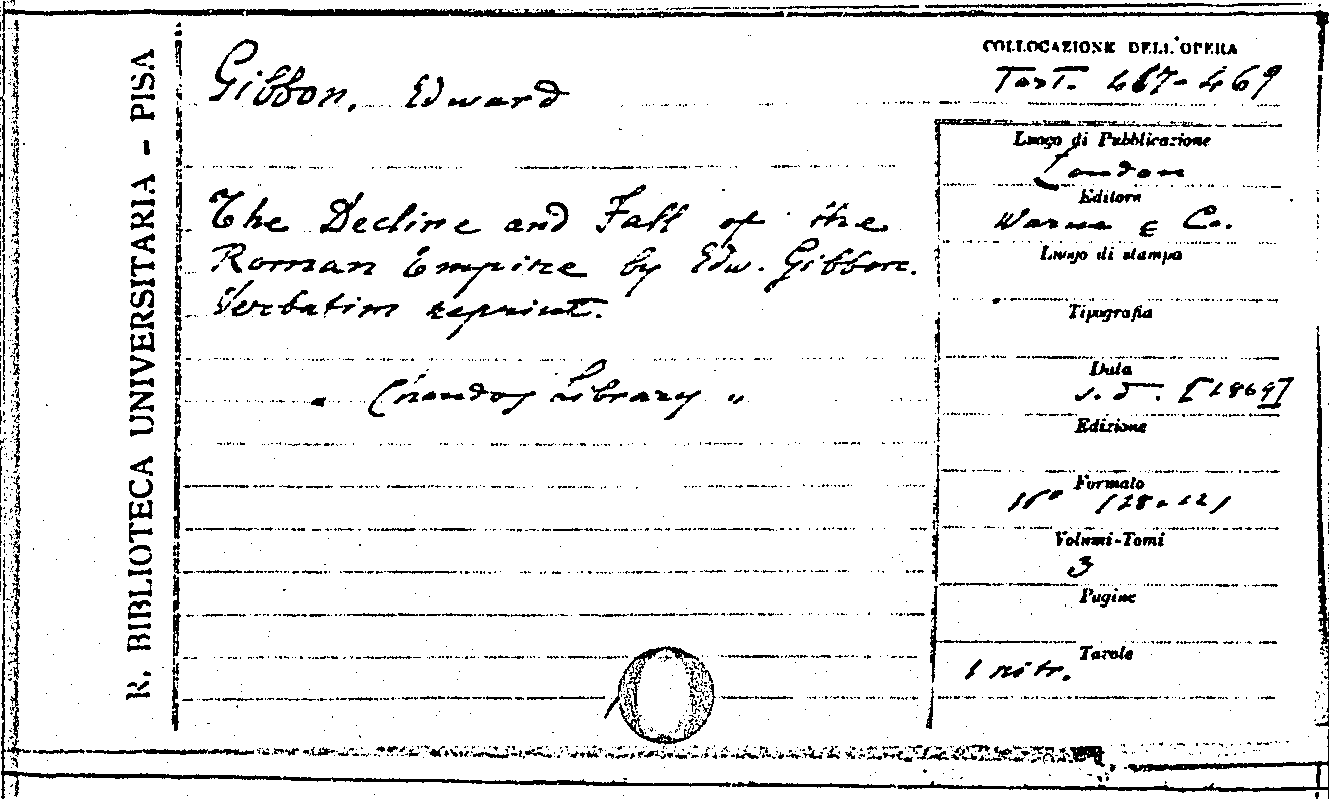 R. BIBLIOTECA UNIVERSITARIA - PISA
Gibbon, Edward
The Decline and Fall of the
Roman Empire by Edw. Gibbon.
Verbatim reprint.
" Chandos Library "
COLLOCAZIONE DELL'OPERA
Tart. 467-469
Luogo di Pubblicazione
London
Editore
Warne & Co.
Luogo di stampa
Tipografia
Data
s. d. [1869]
Edizione
Formato
16°
Volumi-Tomi
3
Pagine
Tavole
1 ritr.